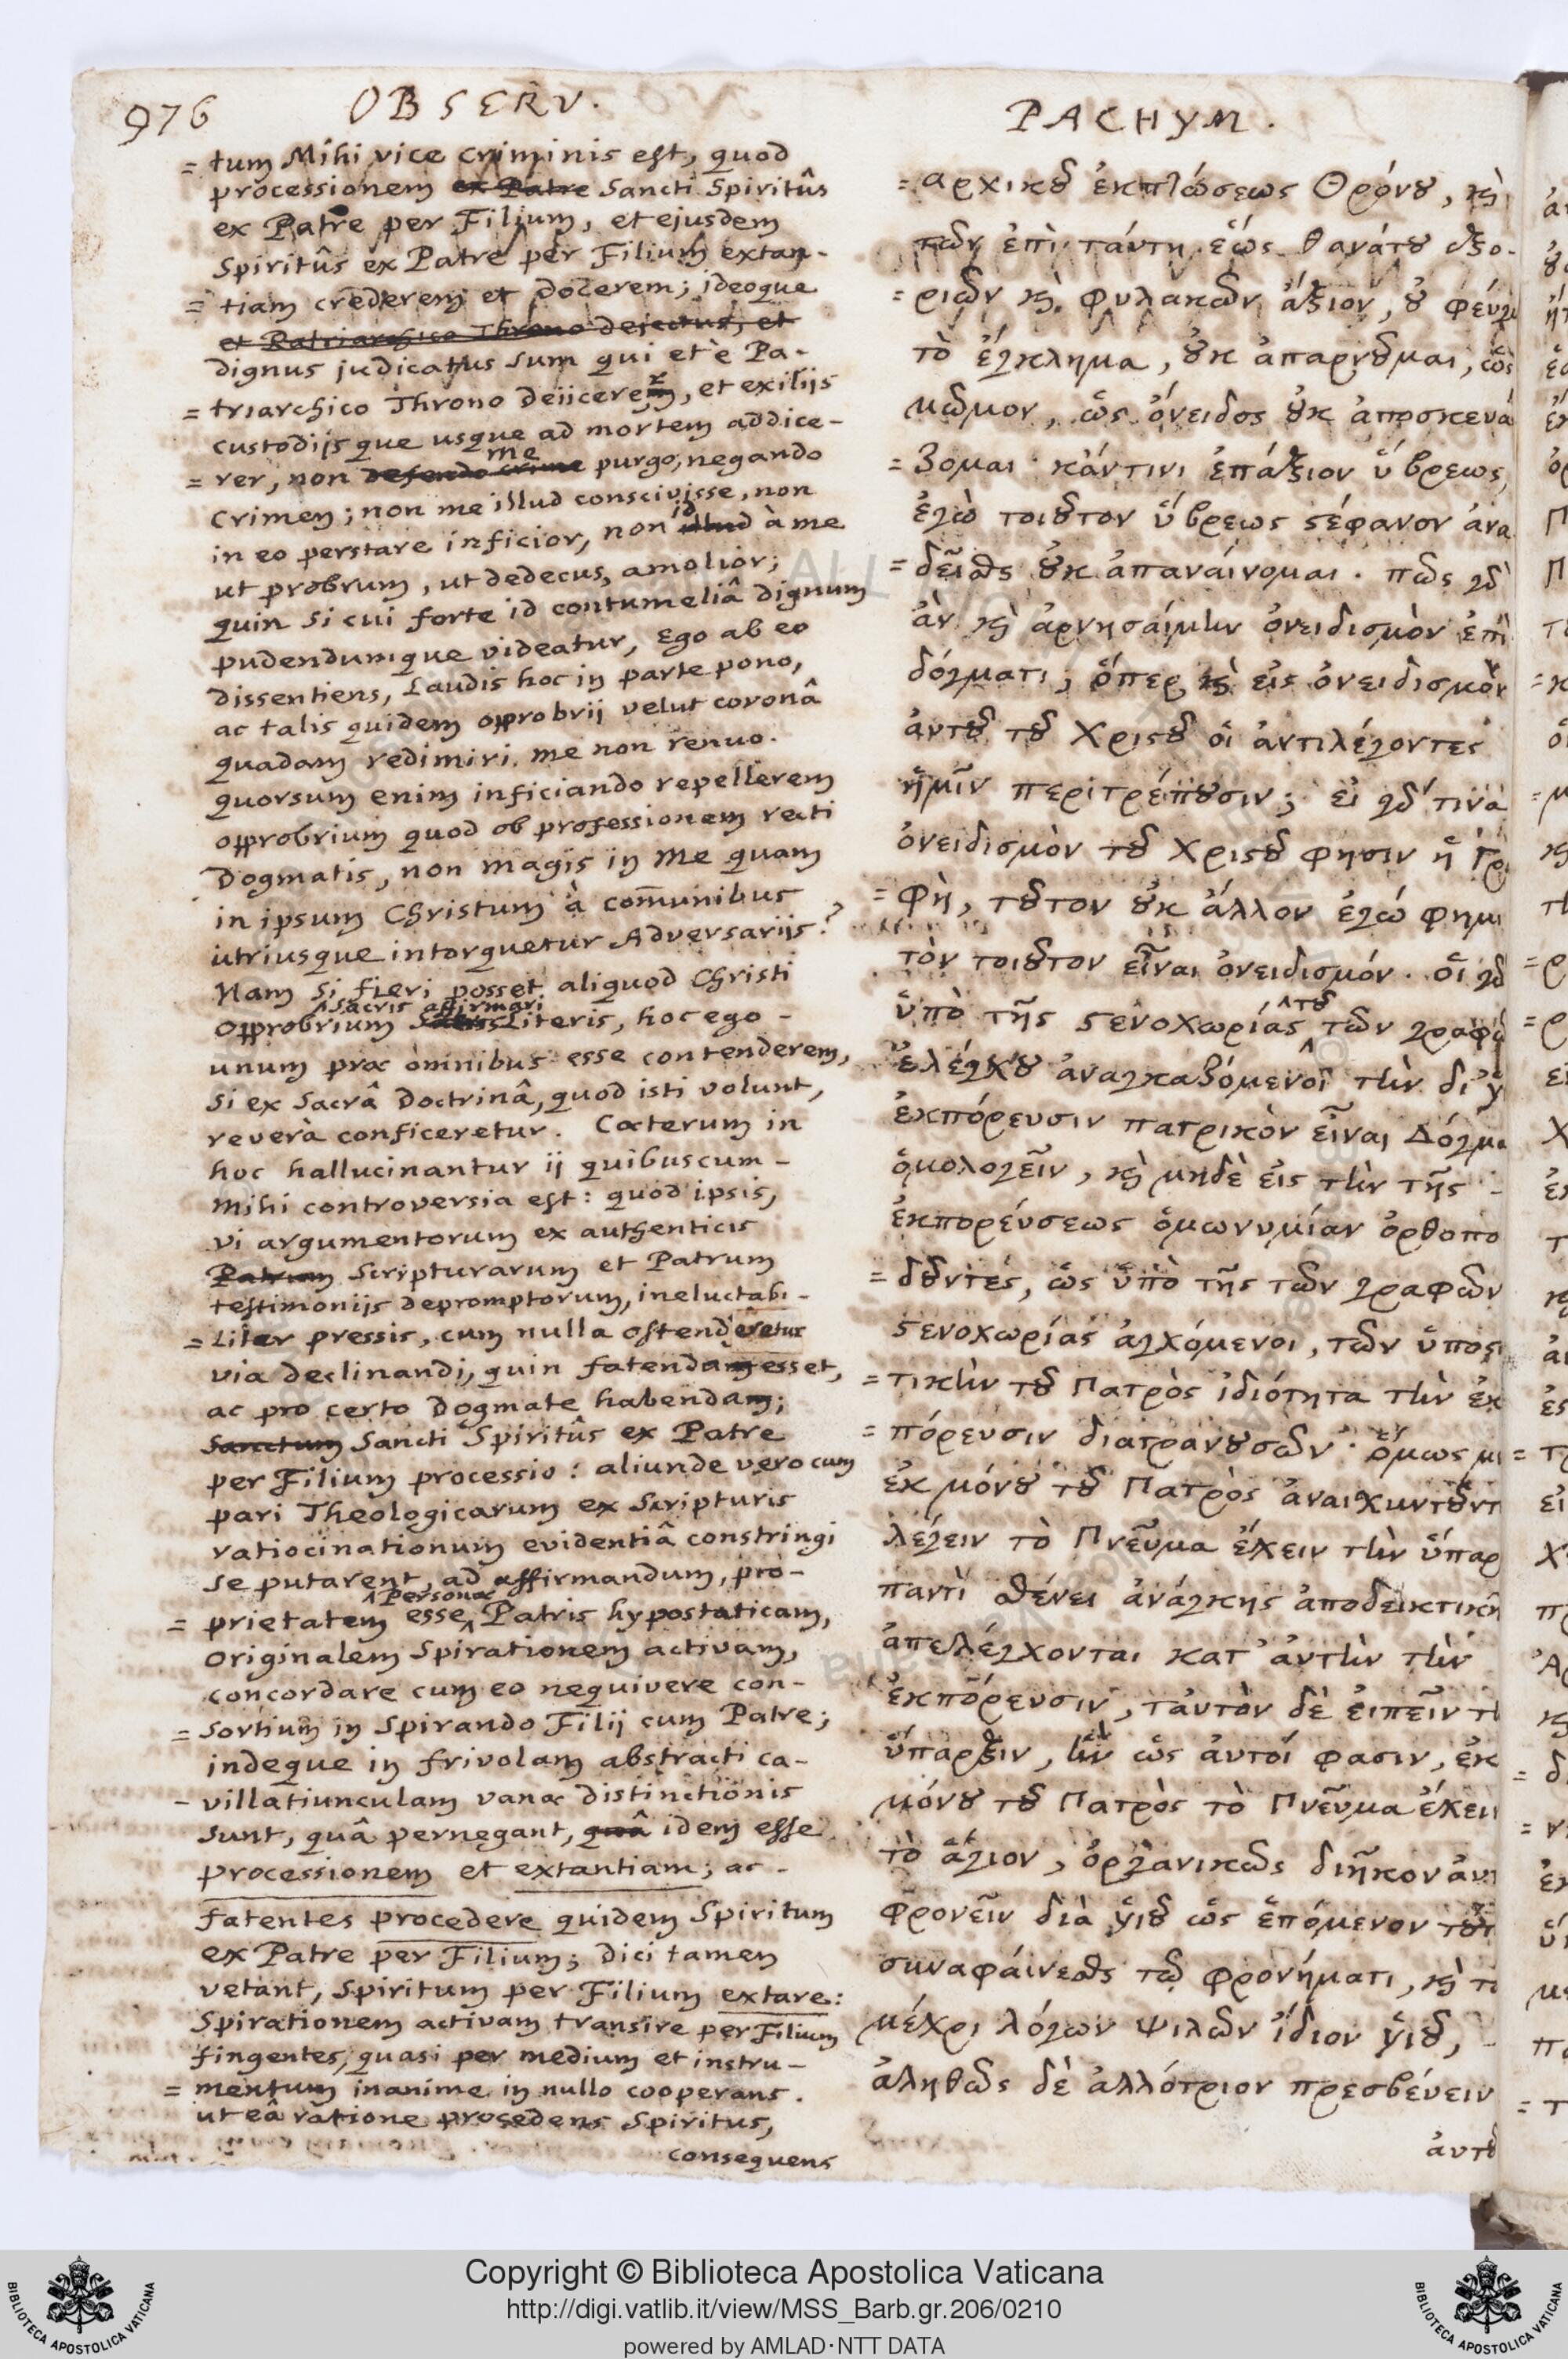 976 OBSERV.
= tum Mihi vice criminis est, quod
processionem ex Patre Sancti Spiritûs
ex Patre per Filium, et ejusdem
Spiritûs ex Patre per Filium extan-
= tiam crederem et docerem; ideoque
et Patriarchico Throno dejectus, et
dignus judicatus sum qui et è Pa-
= triarchico Throno deiicerer, et exilijs
custodijsque usque ad mortem addice-
= rer, non defendo crime me purgo, negando
crimen; non me illud conscivisse, non
in eo perstare inficior, non illud id à me
ut probrum, ut dedecus, amolior;
quin si cui forte id contumeliâ dignum
pudendumque videatur, Ego ab eo
dissentiens, Laudis hoc in parte pono,
ac talis quidem opprobrij velut coronâ
quadam redimiri me non renuo.
quorsum enim inficiando repellerem
opprobrium quod ob professionem recti
Dogmatis, non magis in me quam
in ipsum Christum à com̄unibus
utriusque intorquetur Adversarijs?
Nam si fieri posset aliquod Christi
opprobrium sacris affirmari Literis, hoc ego -
unum præ omnibus esse contenderem,
si ex Sacrâ Doctrinâ, quod isti volunt,
reverà conficeretur. Cæterum in
hoc hallucinantur ij quibuscum -
Mihi controversia est: quod ipsis,
vi argumentorum ex authenticis
Patrum Scripturarum et Patrum
testimonijs depromptorum, ineluctabi -
= liter pressis, cum nulla ostenderetur
via declinandi, quin fatenda esset,
ac pro certo Dogmate habenda;
Sanctum Sancti Spiritûs ex Patre
per Filium processio: aliunde vero cum
pari Theologicarum ex Scripturis
ratiocinationum evidentiâ constringi
se putarent, ad affirmandum, pro-
= prietatem esse Personæ Patris hypostaticam,
originalem Spirationem activam,
concordare cum eo nequivere con-
= sortium in Spirando Filij cum Patre;
indeque in frivolam abstracti ca-
- villatiunculam vanæ distinctionis
sunt, quâ pernegant, quâ idem esse
processionem et extantiam; ac -
fatentes procedere quidem Spiritum
ex Patre per Filium; dici tamen
vetant, Spiritum per Filium extare:
Spirationem activam transire per Filium
fingentes, quasi per medium et instru-
= mentum inanime in nullo cooperans.
ut eâ ratione procedens Spiritus,
consequens
PACHYM.
= αρχικȣ ἐκπτώσεως Θρόνȣ, κὶ
τῶν ἐπὶ τάυτῃ ἕως θανάτȣ ἐξο-
= ριῶν κὶ φυλακῶν ἄξιον, ȣ φέυγω
τὸ ἔγκλημα, ȣκ ἀπαρνȣμαι, ὡς
μῶμον, ὡς ὄνειδος ȣκ ἀποσκευά
= ζομαι· κἄντινι ἐπάξιον ὕβρεως,
ἐγὼ τοιȣτον ὕβρεως ϛέφανον ἀνα
= δεῖσθαι ȣκ ἀπαναίνομαι. πῶς γδ
ἂν κὶ ἀρνησαίμην ὀνειδισμὸν ἐπὶ
δόγματι, ὅπερ κὶ εἰς ὀνειδισμὸν
ἀυτȣ τȣ Χριϛȣ οἱ ἀντιλέγοντες
ἡμῖν περιτρέπȣσιν; εἰ γδ τινὰ
ὀνειδισμὸν τȣ Χριϛȣ φησιν ἡ Γρα
= φὴ, τȣτον ȣκ ἄλλον ἐγώ φημι
τὸν τοιȣτον εἶναι ὀνειδισμόν. οἱ γδ
ὑπὸ τῆς ϛενοχωρίας τȣ τῶν γραφῶ
ἐλέγχȣ ἀναγκαζόμενοι τὴν δι' ὑ
ἐκπόρευσιν πατρικὸν εἶναι Δόγμα
ὁμολογεῖν, κὶ μηδὲ εἰς τὴν τῆς -
ἐκπορέυσεως ὁμωνυμίαν ὀρθοπο
= δȣντες, ὡς ὑπὸ τῆς τῶν γραφῶν
ϛενοχωρίας ἀγχόμενοι, τῶν ὑποϛα
= τικὴν τȣ Πατρὸς ἰδιότητα τὴν ἐκ
= πόρευσιν διατρανȣσῶν· ὅμως μὴ
ἐκ μόνȣ τȣ Πατρὸς ἀναισχυντȣντ
λέγειν τὸ Πνεῦμα ἔχειν τὴν ὕπαρ
παντὶ σθένει ἀνάγκης ἀποδεικτικῆ
ἀπελέγχονται κατ' ἀυτὴν τὴν
ἐκπόρευσιν, ταὐτὸν δὲ ἐιπεῖν τὴ
ὕπαρξιν, ἣν ὡς ἀυτοί φασιν, ἐκ
μόνȣ τȣ Πατρὸς τὸ Πνεῦμα ἔχειν
τὸ ἅγιον, ὀργανικῶς διῆκον ἀυτ
φρονεῖν διὰ ὑιȣ ὡς ἑπόμενον τȣτ
συναφάινεσθαι τῷ φρονήματι, κὶ τὸ
μέχρι λόγων ψιλῶν ἴδιον ὑιȣ, -
ἀληθῶς δὲ ἀλλότριον πρεσβέυειν
ἀυτȣ
Copyright © Biblioteca Apostolica Vaticana
http://digi.vatlib.it/view/MSS_Barb.gr.206/0210
powered by AMLAD·NTT DATA
BIBLIOTECA APOSTOLICA VATICANA
BIBLIOTECA APOSTOLICA VATICANA